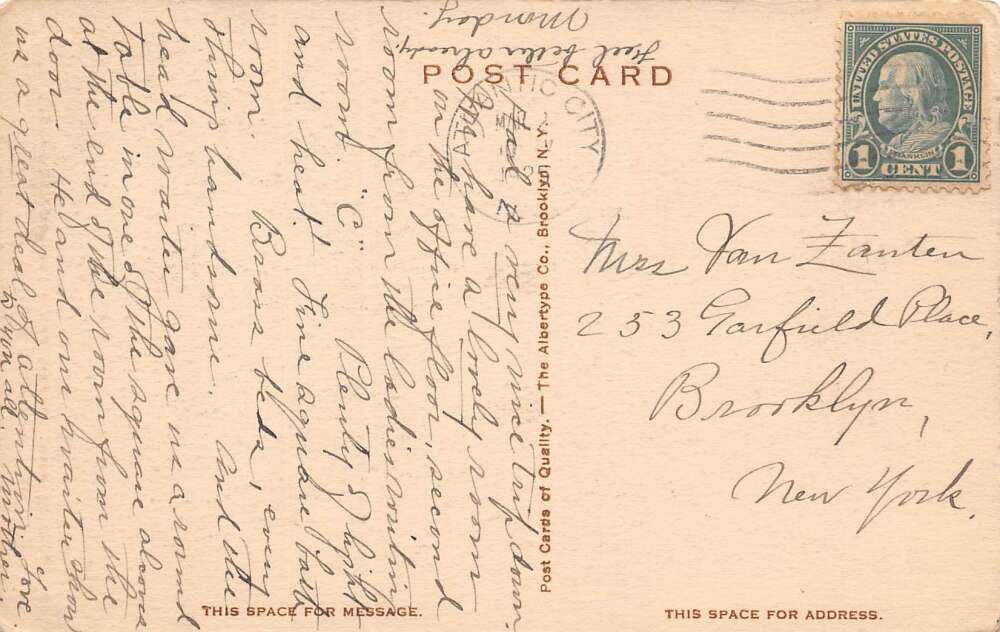 POST CARD
Monday.
Feel better already.
Had a very nice trip down.
We have a lovely room
on the office floor, second
room from the ladies writing
room. "C" Plenty of light
and heat! Fine square bath
room. Brass beds, every
thing handsome. And the
head waiter gave us a round
table in one of the square alcoves
at the end of the room from the
door. He and our waiter show
us a great deal of attention.
Love
to you all. Mother.
THIS SPACE FOR MESSAGE.
Post Cards of Quality. — The Albertype Co., Brooklyn, N. Y.
ATLANTIC CITY
UNITED STATES POSTAGE
FRANKLIN
1 CENT 1
Mrs Van Zanten
253 Garfield Place,
Brooklyn,
New York.
THIS SPACE FOR ADDRESS.